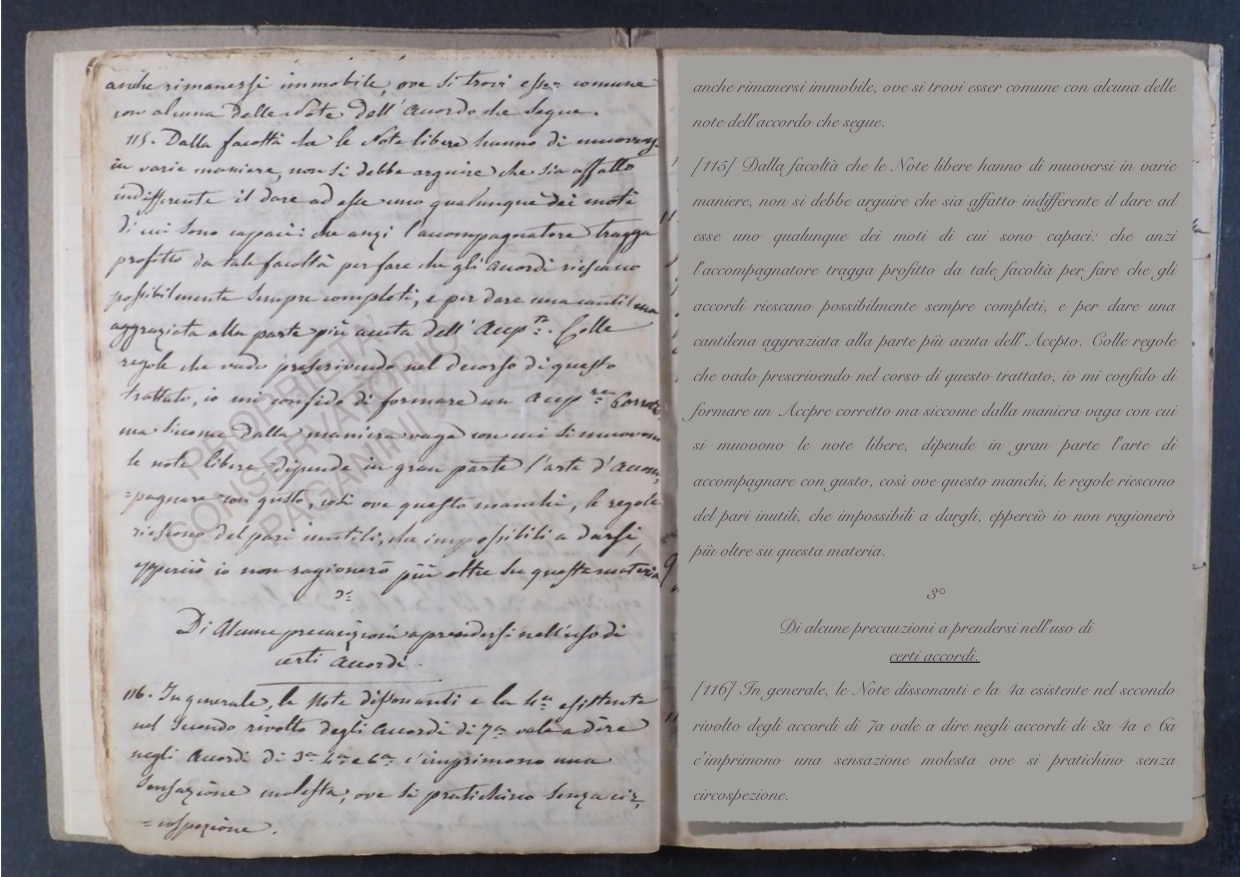 anche rimanersi immobile, ove si trovi esser comune
con alcuna delle Note dell'accordo che segue.
115. Dalla facoltà che le Note libere hanno di muoversi
in varie maniere, non si debbe arguire che sia affatto
indifferente il dare ad esse uno qualunque dei moti
di cui sono capaci: che anzi l'accompagnatore tragga
profitto da tale facoltà per fare che gli accordi riescano
possibilmente sempre completi, e per dare una cantilena
aggraziata alla parte più acuta dell'Accpto. Colle
regole che vado prescrivendo nel decorso di questo
trattato, io mi confido di formare un Accpre corretto
ma siccome dalla maniera vaga con cui si muovono
le note libere, dipende in gran parte l'arte d'accom=
=pagnare con gusto, così ove questo manchi, le regole
riescono del pari inutili, che impossibili a darsi,
epperciò io non ragionerò più oltre su questa materia
3°
Di Alcune precauzioni a prendersi nell'uso di
certi accordi.
116. In generale, le Note dissonanti e la 4a esistente
nel secondo rivolto degli accordi di 7a vale a dire
negli accordi di 3a 4a e 6a c'imprimono una
sensazione molesta, ove si pratichino senza cir=
=cospezione.
PROPRIETA'
CONSERVATORIO
PAGANINI
anche rimanersi immobile, ove si trovi esser comune con alcuna delle
note dell'accordo che segue.
[115] Dalla facoltà che le Note libere hanno di muoversi in varie
maniere, non si debbe arguire che sia affatto indifferente il dare ad
esse uno qualunque dei moti di cui sono capaci: che anzi
l'accompagnatore tragga profitto da tale facoltà per fare che gli
accordi riescano possibilmente sempre completi, e per dare una
cantilena aggraziata alla parte più acuta dell'Accpto. Colle regole
che vado prescrivendo nel corso di questo trattato, io mi confido di
formare un Accpre corretto ma siccome dalla maniera vaga con cui
si muovono le note libere, dipende in gran parte l'arte di
accompagnare con gusto, così ove questo manchi, le regole riescono
del pari inutili, che impossibili a dargli, epperciò io non ragionerò
più oltre su questa materia.
3°
Di alcune precauzioni a prendersi nell'uso di
certi accordi.
[116] In generale, le Note dissonanti e la 4a esistente nel secondo
rivolto degli accordi di 7a vale a dire negli accordi di 3a 4a e 6a
c'imprimono una sensazione molesta ove si pratichino senza
circospezione.